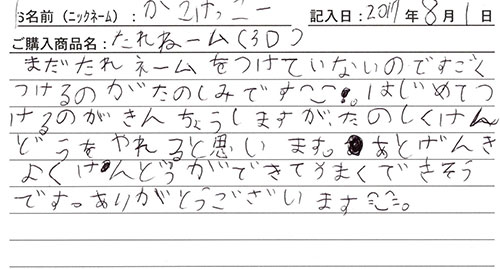 お名前（ニックネーム）：かえけっこー 記入日：2017年8月1日
ご購入商品名：たれねーム（3D）
まだたれネームをつけていないのですごく
つけるのがたのしみです^^!。はじめてつ
けるのがきんちょうしますが、たのしくけん
どうをやれると思います。あとげんき
よくけんどうができてうまくできそう
です。ありがとうございます^^。